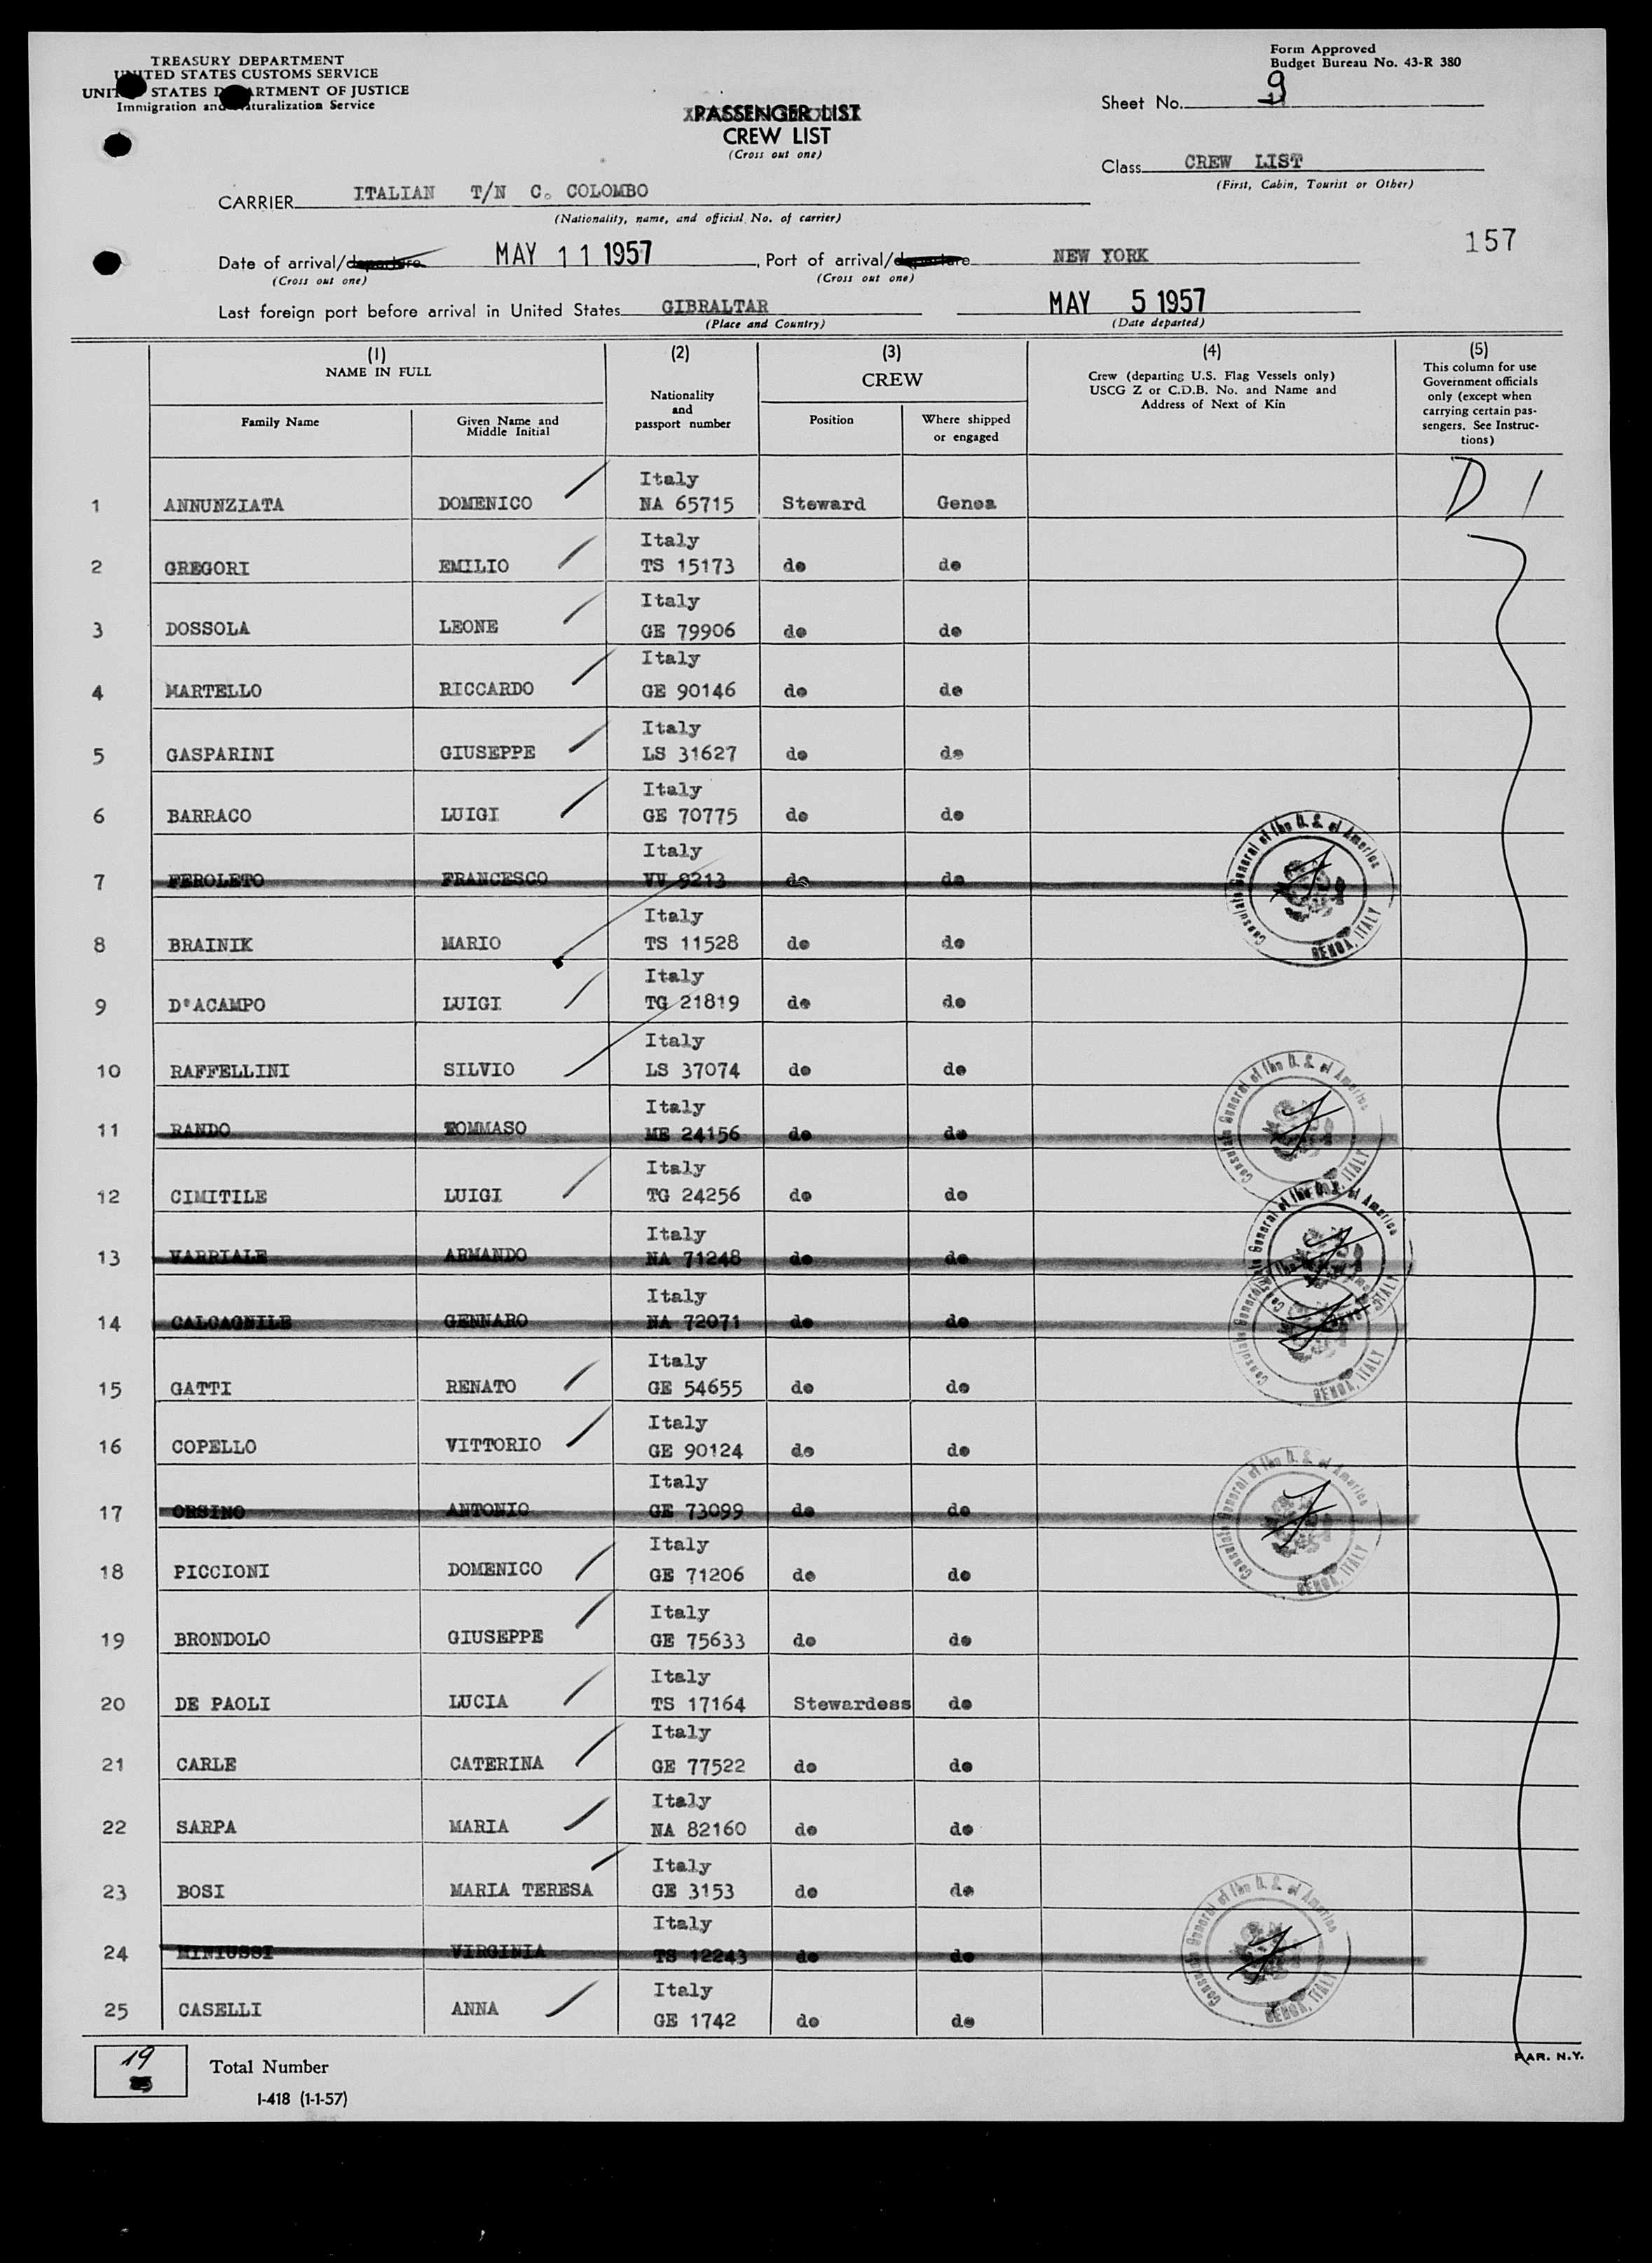 TREASURY DEPARTMENT
UNITED STATES CUSTOMS SERVICE
UNITED STATES DEPARTMENT OF JUSTICE
Immigration and Naturalization Service
Form Approved
Budget Bureau No. 43-R 380
Sheet No. 9
PASSENGER LIST
CREW LIST
(Cross out one)
Class CREW LIST
(First, Cabin, Tourist or Other)
CARRIER ITALIAN T/N C. COLOMBO
(Nationality, name, and official No. of carrier)
157
Date of arrival/departure MAY 11 1957, Port of arrival/departure NEW YORK
(Cross out one) (Cross out one)
Last foreign port before arrival in United States GIBRALTAR MAY 5 1957
(Place and Country) (Date departed)
(1) NAME IN FULL
Family Name
Given Name and Middle Initial
(2)
Nationality and passport number
(3)
CREW
Position
Where shipped or engaged
(4)
Crew (departing U.S. Flag Vessels only)
USCG Z or C.D.B. No. and Name and
Address of Next of Kin
(5)
This column for use
Government officials
only (except when
carrying certain pas-
sengers. See Instruc-
tions)
D 1
1 ANNUNZIATA DOMENICO Italy NA 65715 Steward Genoa
2 GREGORI EMILIO Italy TS 15173 do do
3 DOSSOLA LEONE Italy GE 79906 do do
4 MARTELLO RICCARDO Italy GE 90146 do do
5 GASPARINI GIUSEPPE Italy LS 31627 do do
6 BARRACO LUIGI Italy GE 70775 do do
7 FEROLETO FRANCESCO Italy VV 9213 do do
Consulate General of the U. S. of America GENOA, ITALY
8 BRAINIK MARIO Italy TS 11528 do do
9 D'ACAMPO LUIGI Italy TG 21819 do do
10 RAFFELLINI SILVIO Italy LS 37074 do do
11 RANDO TOMMASO Italy ME 24156 do do
Consulate General of the U. S. of America GENOA, ITALY
12 CIMITILE LUIGI Italy TG 24256 do do
13 VARRIALE ARMANDO Italy NA 71248 do do
Consulate General of the U. S. of America GENOA, ITALY
14 CALCAGNILE GENNARO Italy NA 72071 do do
Consulate General of the U. S. of America GENOA, ITALY
15 GATTI RENATO Italy GE 54655 do do
16 COPELLO VITTORIO Italy GE 90124 do do
17 ORSINO ANTONIO Italy GE 73099 do do
Consulate General of the U. S. of America GENOA, ITALY
18 PICCIONI DOMENICO Italy GE 71206 do do
19 BRONDOLO GIUSEPPE Italy GE 75633 do do
20 DE PAOLI LUCIA Italy TS 17164 Stewardess do
21 CARLE CATERINA Italy GE 77522 do do
22 SARPA MARIA Italy NA 82160 do do
23 BOSI MARIA TERESA Italy GE 3153 do do
24 MINIUSSI VIRGINIA Italy TS 12243 do do
Consulate General of the U. S. of America GENOA, ITALY
25 CASELLI ANNA Italy GE 1742 do do
19 Total Number
I-418 (1-1-57)
PAR. N.Y.